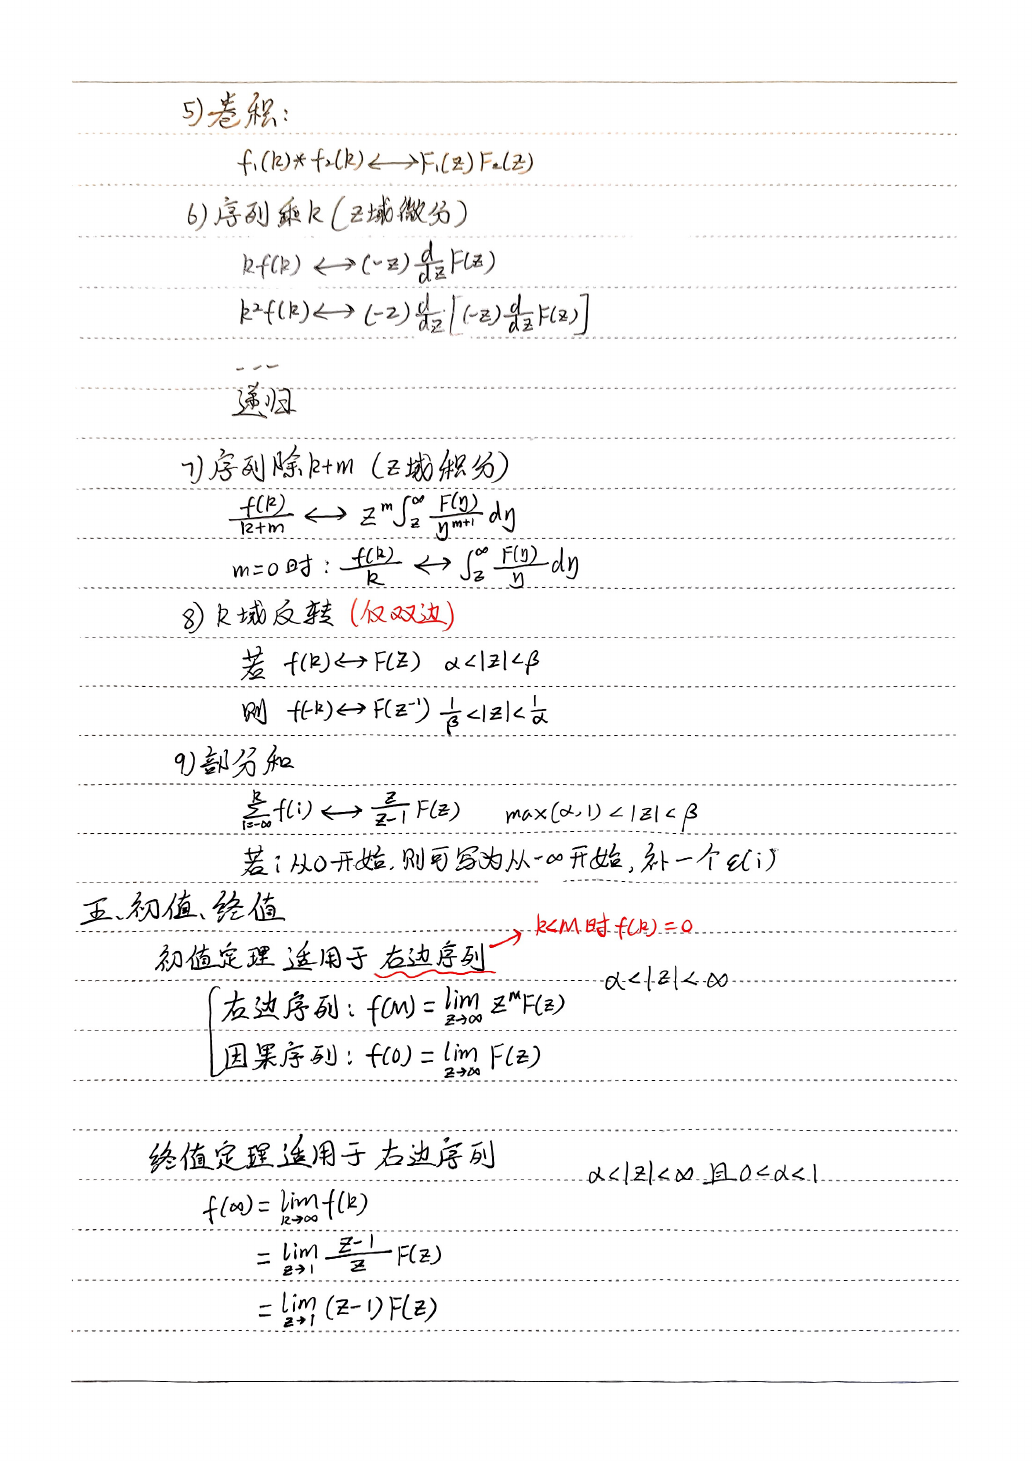 5) 卷积:
f₁(k)*f₂(k)⟷F₁(z)F₂(z)
6) 序列乘k(z域微分)
kf(k) ⟷ (-z) d/dz F(z)
k²f(k)⟷ (-z) d/dz [(-z) d/dz F(z)]
---
递归
7) 序列除k+m (z域积分)
f(k)/(k+m) ⟷ z^m ∫_z^∞ F(η)/η^(m+1) dη
m=0时: f(k)/k ⟷ ∫_z^∞ F(η)/η dη
8) k域反转 (仅双边)
若 f(k)⟷F(z) α<|z|<β
则 f(-k)⟷F(z⁻¹) 1/β<|z|<1/α
9) 部分和
∑_{i=-∞}^k f(i)⟷ z/(z-1) F(z) max(α,1)<|z|<β
若i从0开始,则可写为从-∞开始,补一个ε(i)
五、初值、终值
k<M时f(k)=0
初值定理 适用于 右边序列
α<|z|<∞
右边序列: f(M)=lim_{z→∞} z^M F(z)
因果序列: f(0)=lim_{z→∞} F(z)
终值定理适用于 右边序列
α<|z|<∞ 且0<α<1
f(∞)=lim_{k→∞} f(k)
=lim_{z→1} (z-1)/z F(z)
=lim_{z→1} (z-1)F(z)